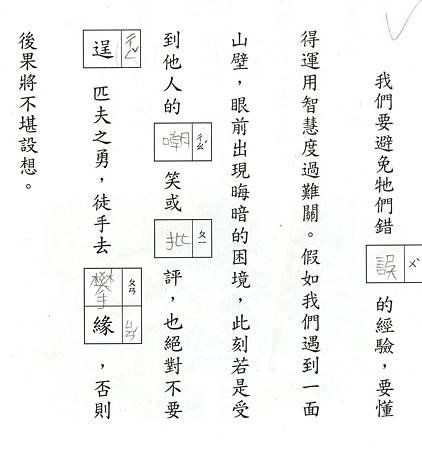 我們要避免牠們錯誤ㄨˋ的經驗，要懂
得運用智慧度過難關。假如我們遇到一面
山壁，眼前出現晦暗的困境，此刻若是受
到他人的嘲ㄔㄠˊ笑或批ㄆㄧ評，也絕對不要
逞ㄔㄥˇ匹夫之勇，徒手去攀ㄆㄢ緣ㄩㄢˊ，否則
後果將不堪設想。